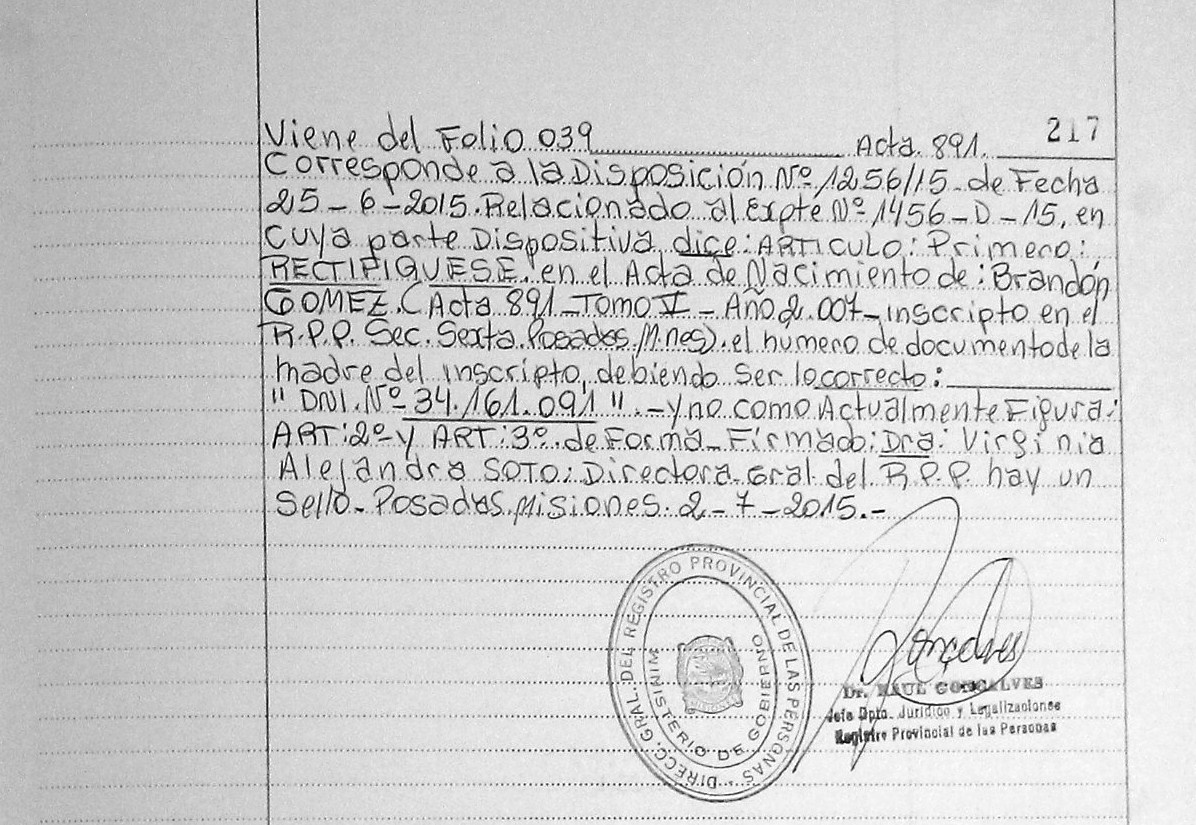 217
Viene del Folio 039 Acta. 891.
Corresponde a la Disposición Nº 1256/15. de Fecha
25-6-2015. Relacionado al Expte Nº 1456-D-15, en
cuya parte Dispositiva dice: ARTICULO: Primero:
RECTIFIQUESE. en el Acta de Nacimiento de: Brandón
GOMEZ. (Acta 891_Tomo V_Año 2.007_inscripto en el
R.P.P. Sec. Sexta. Posadas. M.nes). el numero de documento de la
madre del inscripto, debiendo ser lo correcto:
" DNI. Nº 34.161.091 ". - y no como Actualmente Figura:
ART: 2º y ART: 3º. de Forma_Firmado: Dra: Virginia
Alejandra SOTO: Directora Gral del R.P.P. hay un
Sello_ Posadas. Misiones. 2-7-2015.-
DIRECC. GRAL. DEL REGISTRO PROVINCIAL DE LAS PERSONAS
MINISTERIO DE GOBIERNO
Gonçalves
Dr. RAUL GONCALVES
Jefe Dpto. Jurídico y Legalizaciones
Registro Provincial de las Personas